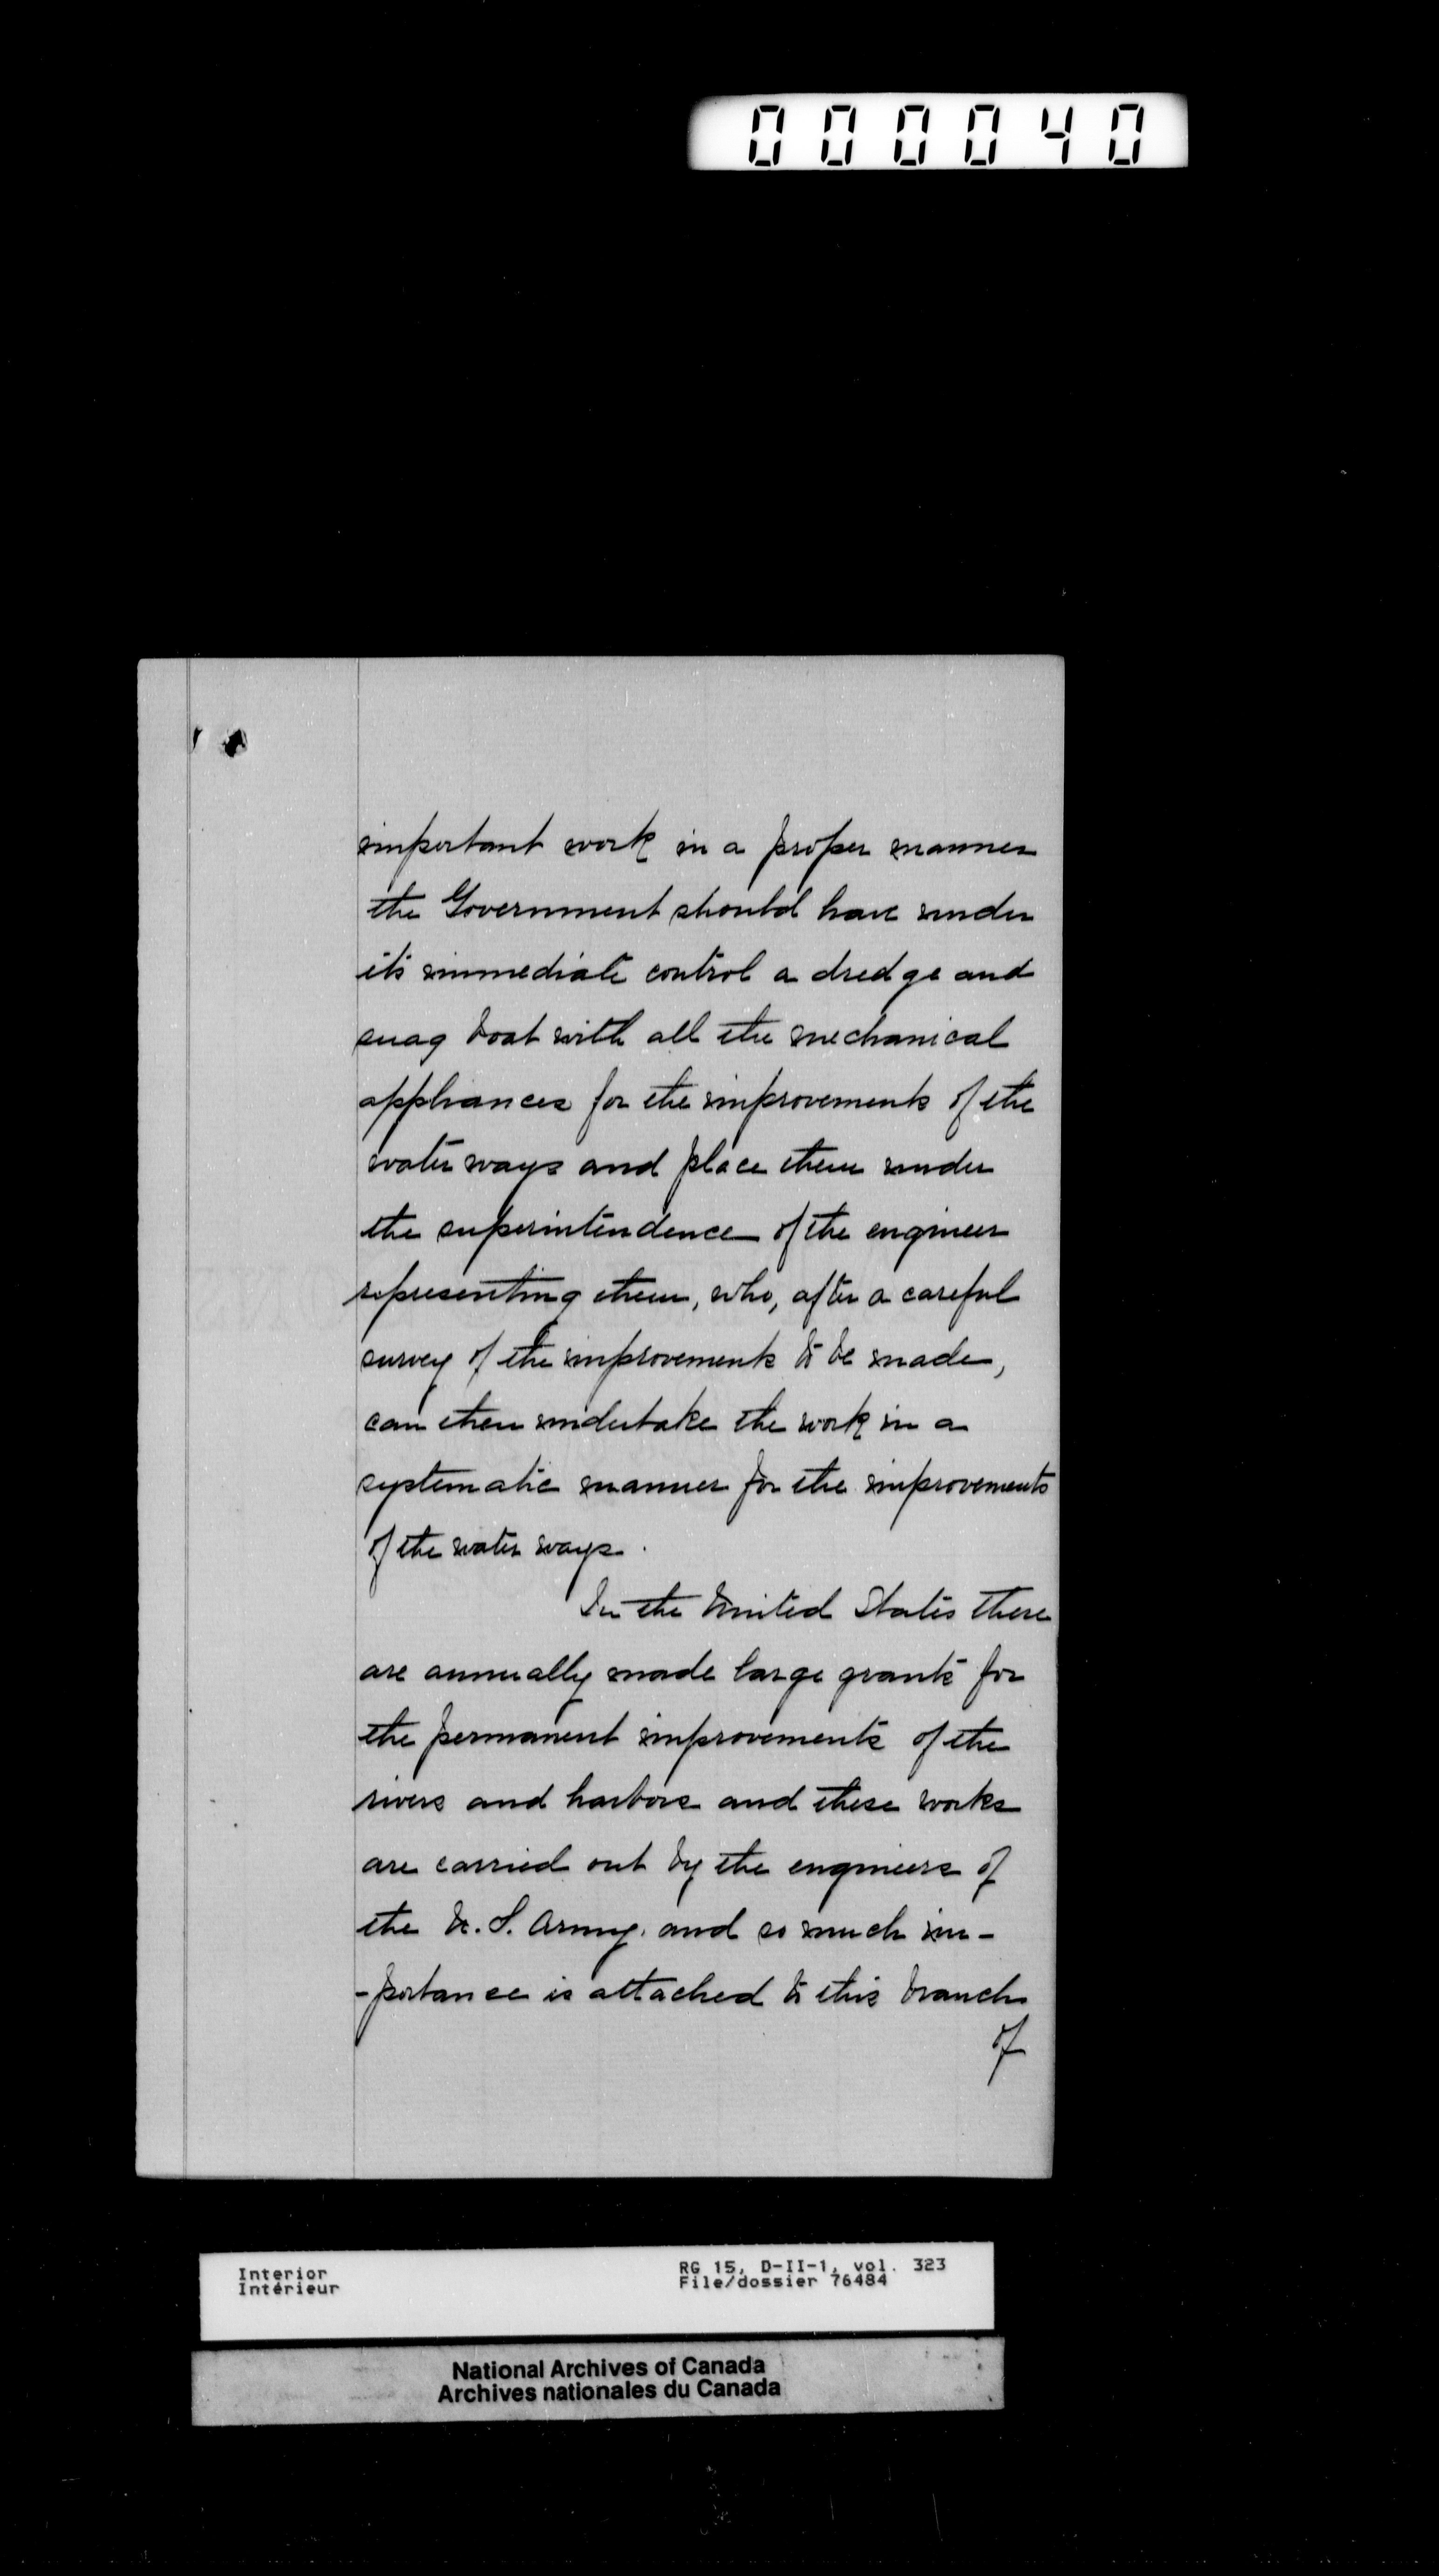 000040
important work in a proper manner
the Government should have under
its immediate control a dredge and
snag boat with all the mechanical
appliances for the improvements of the
water ways and place them under
the superintendence of the engineer
representing them, who, after a careful
survey of the improvements to be made,
can then undertake the work in a
systematic manner for the improvements
of the water ways.
In the United States there
are annually made large grants for
the permanent improvements of the
rivers and harbors and these works
are carried out by the engineers of
the U.S. Army. and so much im-
-portance is attached to this branch
of
Interior
Intérieur
RG 15, D-II-1, vol. 323
File/dossier 76484
National Archives of Canada
Archives nationales du Canada